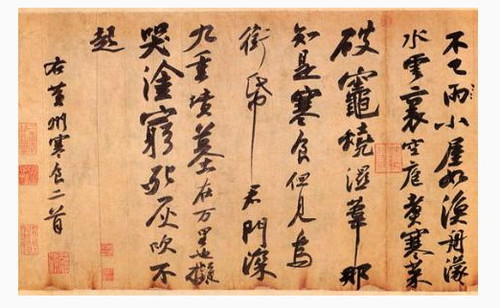 不已雨小屋如漁舟濛々
水雲裏空庖煮寒菜
破竈燒濕葦那
知是寒食但見烏
銜帋君門深
九重墳墓在万里也擬
哭塗窮死灰吹不
起
右黄州寒食二首